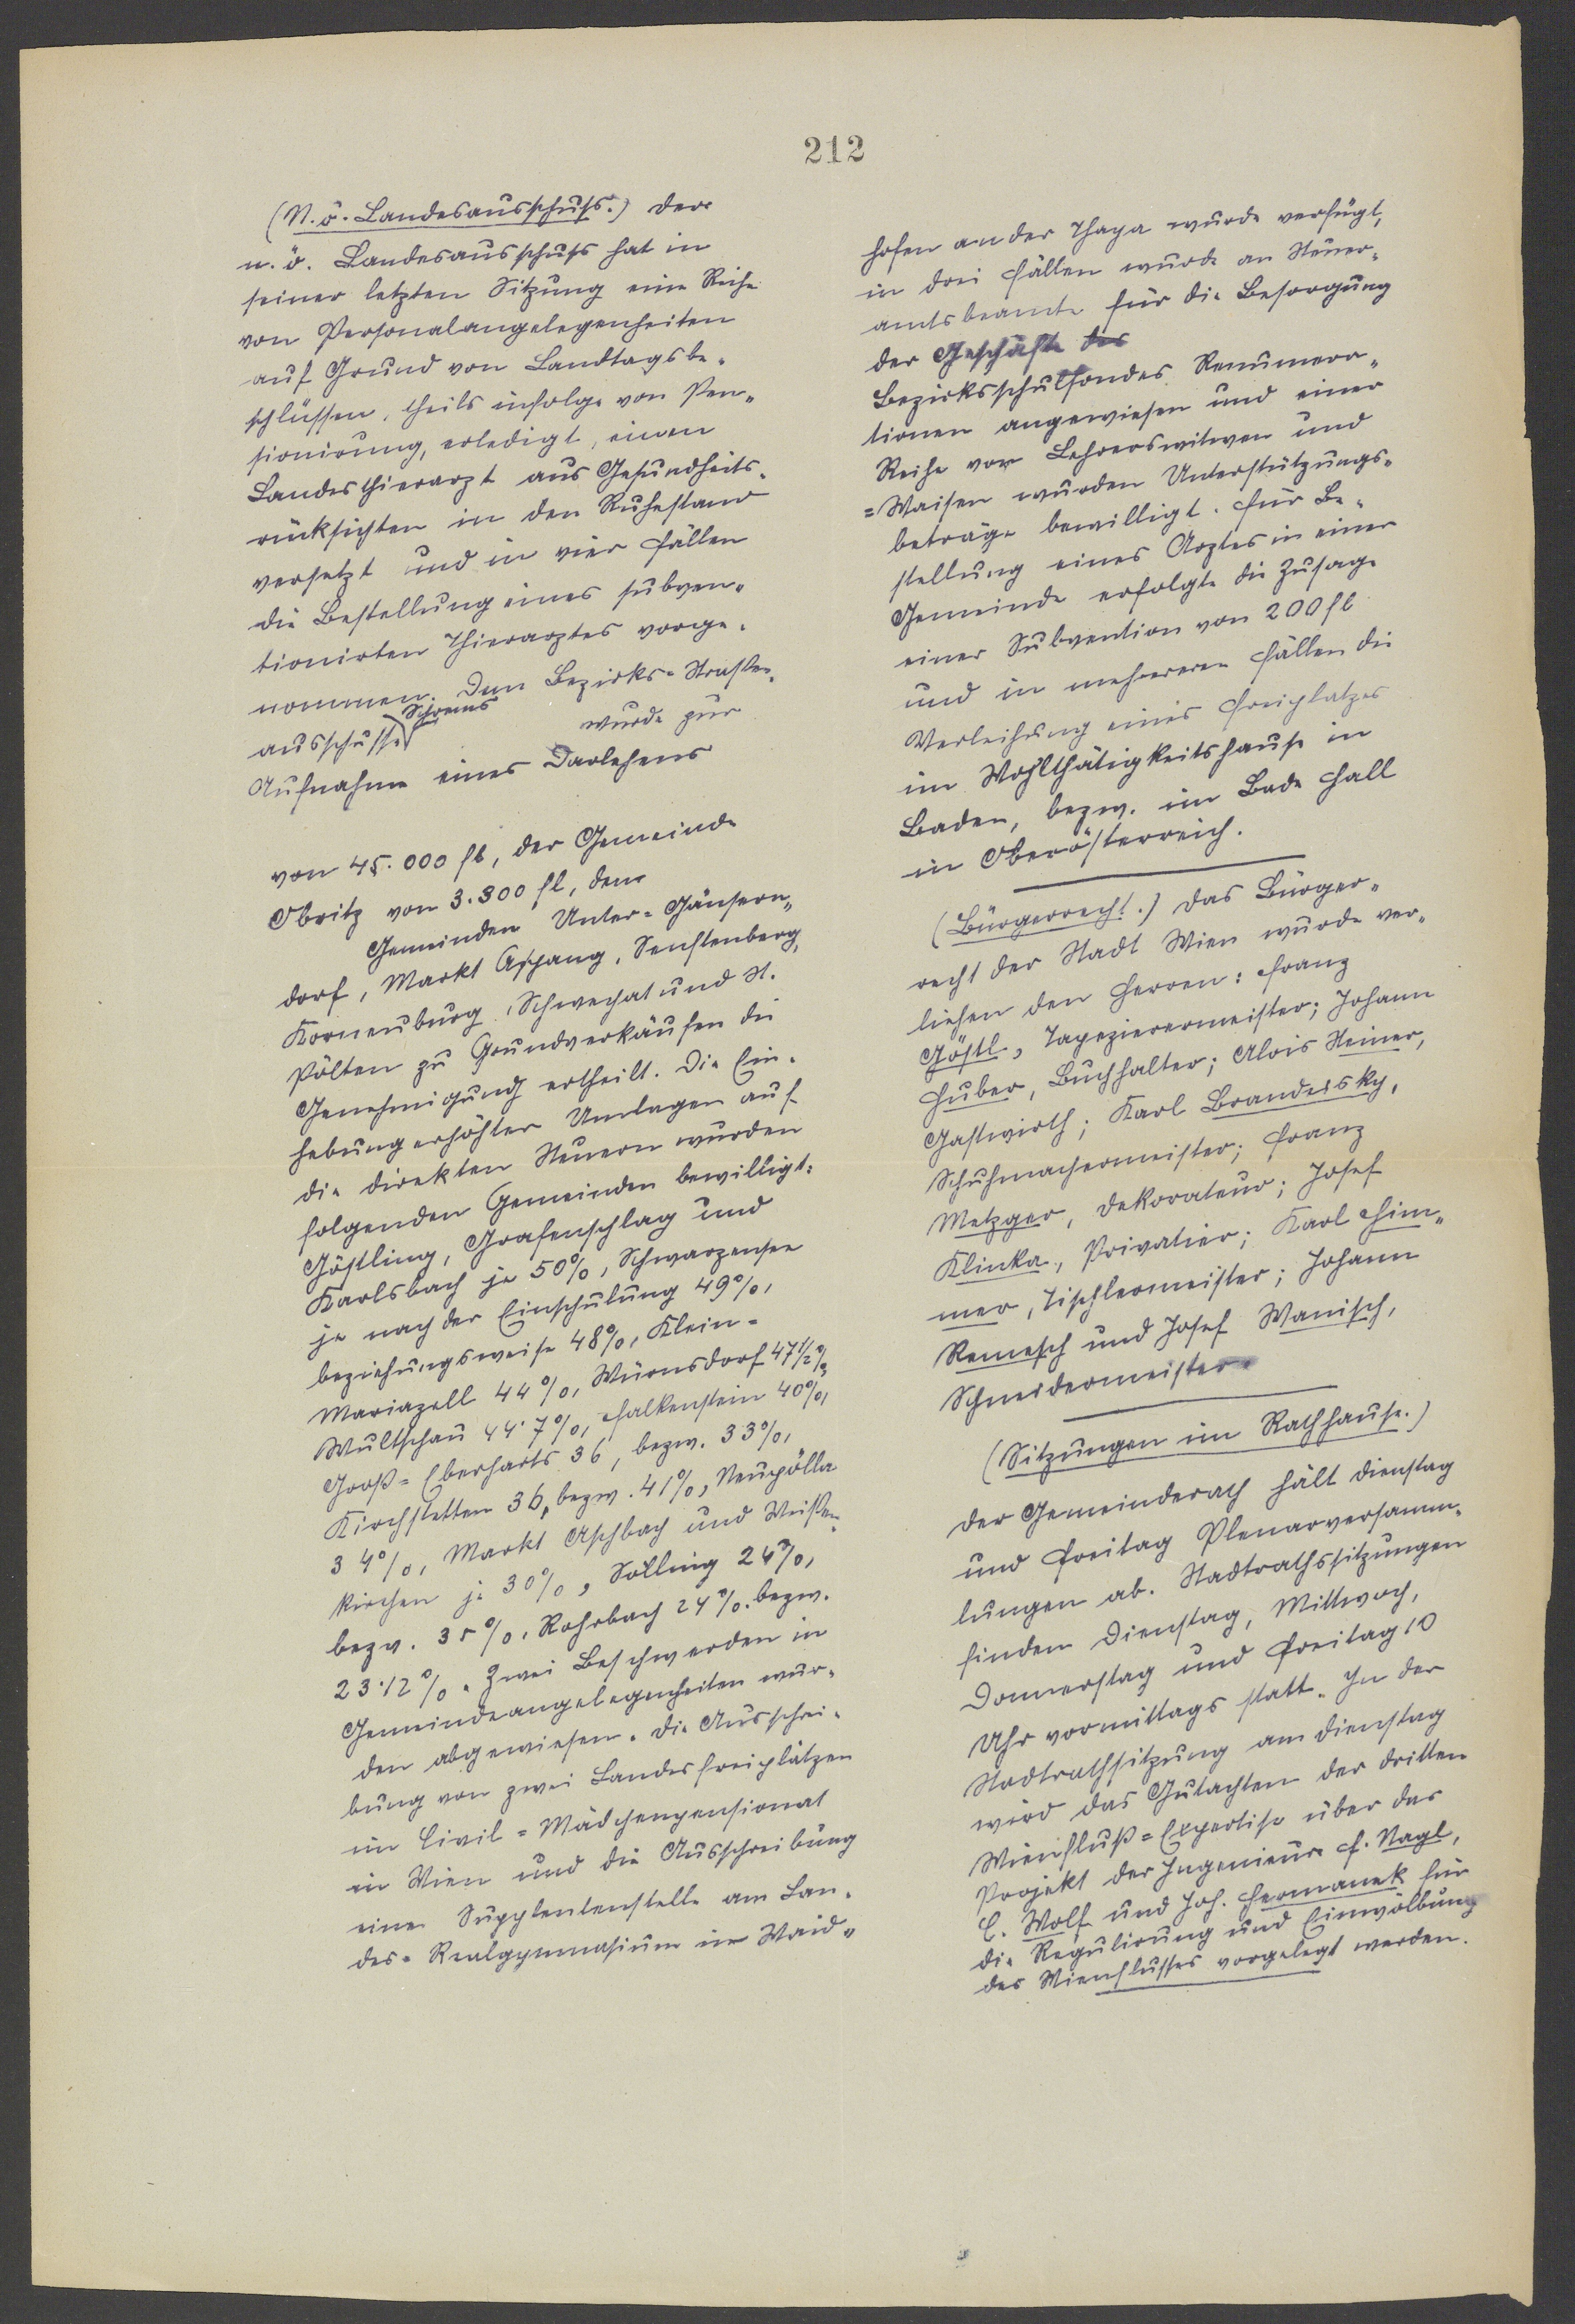 212
(N.ö. Landesausschuß.) Der
n. ö. Landesausschuß hat in
seiner letzten Sitzung eine Reihe
von Personalangelegenheiten
auf Grund von Landtagsbe-
schlüssen, theils infolge von Pen-
sionirung, erledigt, einen
Landesthierarzt aus Gesundheits-
rücksichten in den Ruhestand
versetzt und in vier Fällen
die Bestellung eines subven-
tionirten Thierarztes vorge-
nommen. Dem Bezirks-Straßen-
ausschusse Schrems wurde zur
Aufnahme eines Darlehens
von 45.000 fl, der Gemeinde
Obritz von 3.300 fl, den
Gemeinden Unter-Gänsern-
dorf, Markt Aspang, Senftenberg,
Korneuburg, Schwechat und St.
Pölten zu Grundverkäufen die
Genehmigung ertheilt. Die Ein-
hebung erhöhter Umlagen auf
die direkten Steuern wurden
folgenden Gemeinden bewilligt:
Göstling, Grafenschlag und
Karlsbach je 50%, Schwarzensee
je nach der Einschulung 49%,
beziehungsweise 48%, Klein-
Mariazell 44%, Würnsdorf 47 1/2%,
Wultschau 44·7%, Falkenstein 40%,
Groß-Eberharts 36, bezw. 33%,
Kirchstetten 36, bezw. 41%, Neupölla
34%, Markt Aschbach und Weißen-
kirchen je 30%, Solling 24%,
bezw. 35%, Rohrbach 24% bezw.
23·12%. Zwei Beschwerden in
Gemeindeangelegenheiten wur-
den abgewiesen. Die Ausschrei-
bung von zwei Landesfreiplätzen
im Civil-Mädchenpensionat
in Wien und die Ausschreibung
einer Supplentenstelle am Lan-
des-Realgymnasium in Waid-
hofen an der Thaya wurde verfügt,
in drei Fällen wurde an Steuer-
amtsbeamte für die Besorgung
der Geschäfte des
Bezirksschulfondes Renumera-
tionen angewiesen und einer
Reihe von Lehrerswitwen und
=Waisen wurden Unterstützungs-
beträge bewilligt. Für Be-
stellung eines Arztes in einer
Gemeinde erfolgte die Zusage
einer Subvention von 200 fl
und in mehreren Fällen die
Verleihung eines Freiplatzes
im Wohlthätigkeitshause in
Baden, bezw. im Bade Hall
in Oberösterreich.
(Bürgerrecht.) Das Bürger-
recht der Stadt Wien wurde ver-
liehen den Herren: Franz
Göstl, Tapezierermeister; Johann
Huber, Buchhalter; Alois Steiner,
Gastwirth; Karl Brandeisky,
Schuhmachermeister; Franz
Metzger, Dekorateur; Josef
Klinka, Privatier; Karl Him-
mer, Tischlermeister; Johann
Remesch und Josef Wanisch,
Schneidermeister.
(Sitzungen im Rathhause.)
Der Gemeinderath hält Dienstag
und Freitag Plenarversamm-
lungen ab. Stadtrathssitzungen
finden Dienstag, Mittwoch,
Donnerstag und Freitag 10
Uhr vormittags statt. In der
Stadtrathsitzung am Dienstag
wird das Gutachten der dritten
Wienfluß-Expertise über das
Projekt der Ingenieure F. Nagl,
C. Wolf und Joh. Hermanek für
die Regulirung und Einwölbung
des Wienflusses vorgelegt werden.